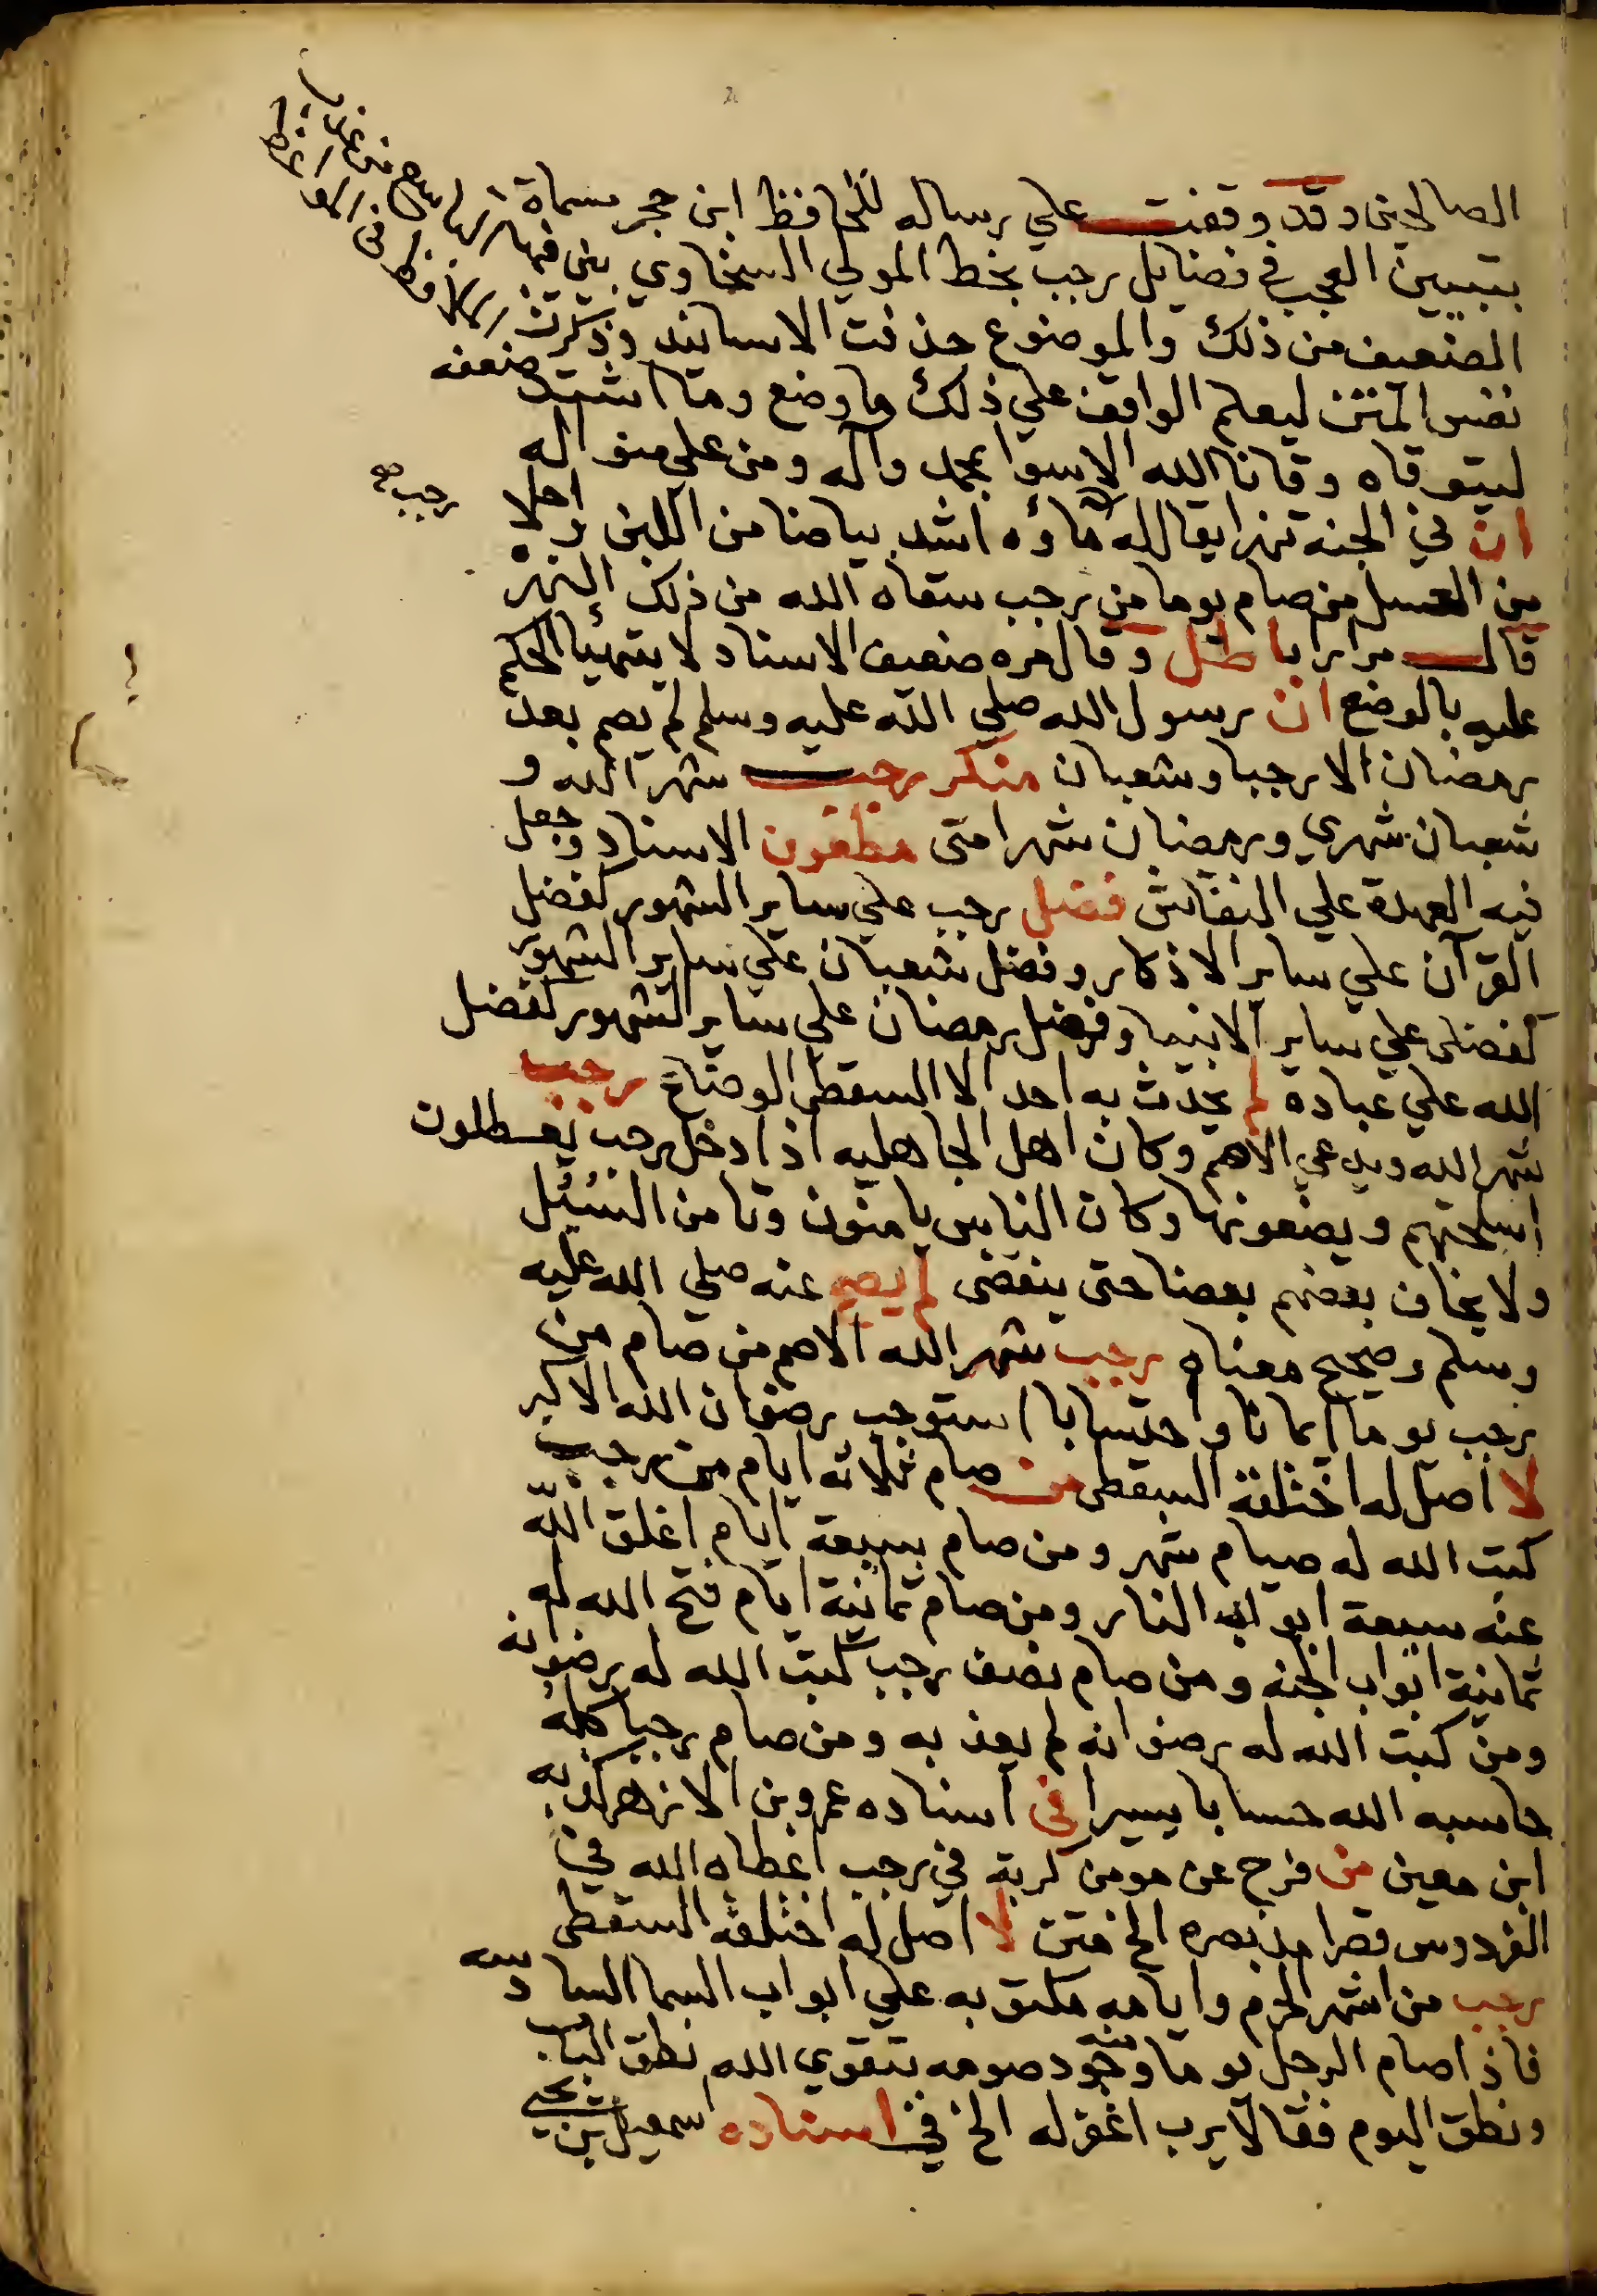 الصالحين وقد وقفت علي رساله للحافظ ابن حجر مسماة
بتبيين العجب في فضايل رجب بخط المولي السخاوي بين فيها
الضعيف من ذلك والموضوع حذفت الاسانيد وذكرت
نفس المتن ليعلم الواقف علي ذلك ما وضع وما اشتد ضعفه
ليتوقاه وقانا الله الاسوا بمحمد وآله ومن علي منواله
ان في الجنه نهرا يقال له ماؤه اشد بياضا من اللبن واحلا
رجب صح
من العسل من صام يوما من رجب سقاه الله من ذلك النهر
قال مرارا باطل وقال مره ضعيف الاسناد لا يتهيا الحكم
عليه بالوضع ان رسول الله صلي الله عليه وسلم لم يصم بعد
رمضان الا رجبا وشعبان منكر رجب شهر الله و
شعبان شهري ورمضان شهر امتى مظعون الاسناد وجعل
فيه العهدة علي النقاش فضل رجب علي ساير الشهور كفضل
القرآن علي ساير الاذكار وفضل شعبان علي ساير الشهور
كفضلى علي ساير الانبيا وفضل رمضان على ساير الشهور كفضل
الله علي عباده لم يحدث به احد الا السقطى الوضاع رجب
شهر الله ويدعي الاصم وكان اهل الجاهليه اذا دخل رجب يعطلون
اسلحتهم ويضعونها وكان الناس يامنون وتامن السبيل
ولا يخاف بعضهم بعضا حتى ينقضى لم يصح عنه صلي الله عليه
وسلم وصحيح معناه رجب شهر الله الاصم من صام من
رجب يوما ايمانا واحتسابا استوجب رضوان الله الاكبر
لا اصل له اختلقه السقطى من صام ثلاثه ايام من رجب
كتب الله له صيام شهر ومن صام سبعة ايام اغلق الله
عنه سبعة ابواب النار ومن صام ثمانية ايام فتح الله له
ثمانية ابواب الجنه ومن صام نصف رجب كتب الله له رضوانه
ومن كتب الله له رضوانه لم يعذبه ومن صام رجبا كله
حاسبه الله حسابا يسيرا فى اسناده عمرو بن الازهر كذبه
ابن معين من فرج عن مومن كربة في رجب اعطاه الله في
الفردوس قصرا مد بصره الخ متن لا اصل له اختلقه السقطى
رجب من اشهر الحرم وايامه مكتوبه علي ابواب السما السادسه
فاذا صام الرجل يوما منه وجود صومه بتقوي الله نطق الباب
ونطق اليوم فقالا يرب اغفر له الخ في اسناده اسمعيل بن يحيى